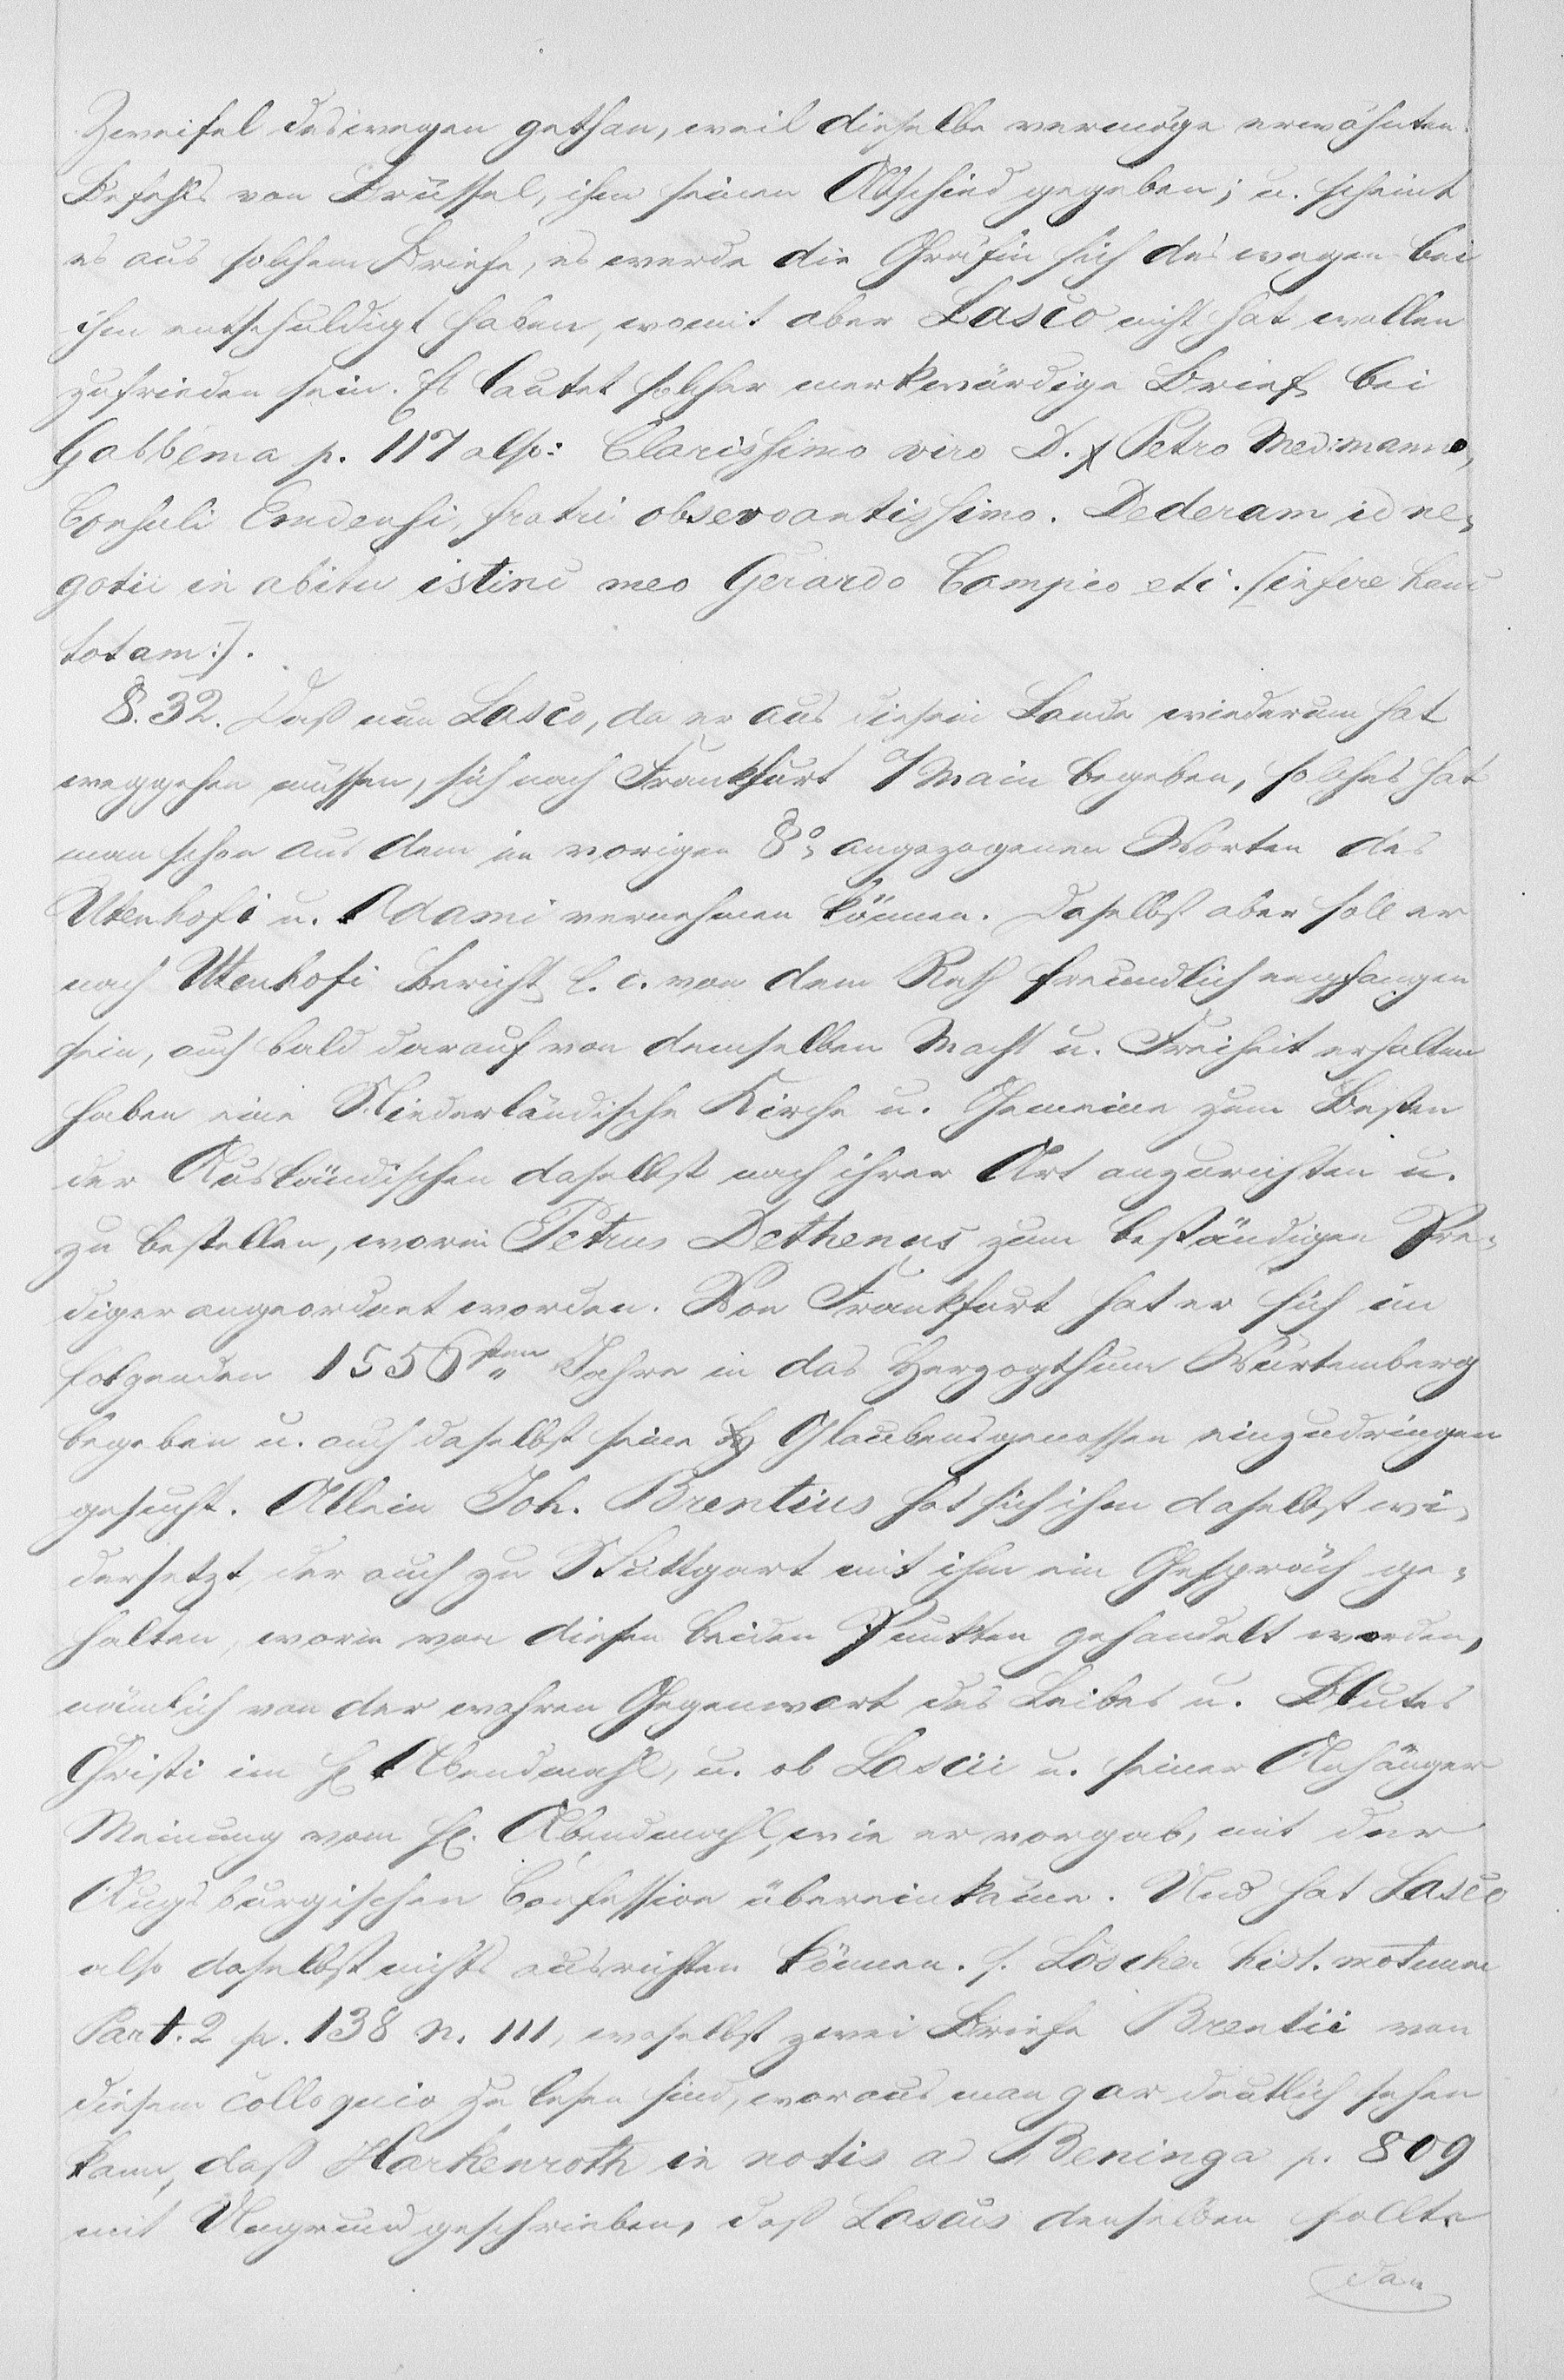 Zweifel deswegen gethan, weil dieselbe vermöge erwähnten
Befehls von Brüssel, ihm seinen Abschied gegeben; u. scheint
es aus solchem Briefe, es werde die Gräfin sich deswegen bei
ihm entschuldigt haben, womit aber Lasco nicht hat wollen
zufrieden sein. Es lautet solcher merkwürdige Brief bei
Gabbema p. 117 also: Clarissimo viro D. Petro Medmanno,
Consuli Emdensi, fratri observantissimo. Dederam id ne-
gotii in abitu istinc meo Gerardo Campio etc. [insere hanc
totam:].
§. 32. Daß nun Lasco, da er aus diesem Lande wiederum hat
weggehen müssen, sich nach Frankfurt a/Main begeben, solches hat
man schon aus dem im vorigen §o angezogenen Worten des
Utenhofi u. Adami vernehmen können. Daselbst aber soll er
nach Utenhofi Bericht l. c. von dem Rath freundlich empfangen
sein, auch bald darauf von demselben Macht u. Freiheit erhalten
haben eine Niederländische Kirche u. Gemeine zum Besten
der Ausländischen daselbst nach ihrer Art anzurichten u.
zu bestellen, worin Petrus Dethenus zum beständigen Pre-
diger angeordnet worden. Von Frankfurt hat er sich im
folgenden 1556sten Jahre in das Herzogthum Würtemberg
begeben u. auch daselbst seine Glaubensgenossen einzudringen
gesucht. Allein Joh. Brentius hat sich ihm daselbst wi-
dersetzt, der auch zu Stuttgart mit ihm ein Gespräch ge-
halten, worin von diesen beiden Punkten gehandelt worden,
nämlich von der wahren Gegenwart des Leibes u. Blutes
Christi im hl. Abendmahl, u. ob Lascii u. seiner Anhänger
Meinung vom hl. Abendmahl, wie er vorgab, mit der
Augsburgischen Confession übereinkäme. Und hat Lasco
also daselbst nichts ausrichten können. s. Löscher hist. motuum
Part. 2 p. 138 n. III, woselbst zwei Briefe Brentii von
diesem colloquio zu lesen sind, woraus man gar deutlich sehen
kann, daß Harkenroth in notis ad Beninga p. 809
mit Ungrund geschrieben, daß Lascus denselben sollte